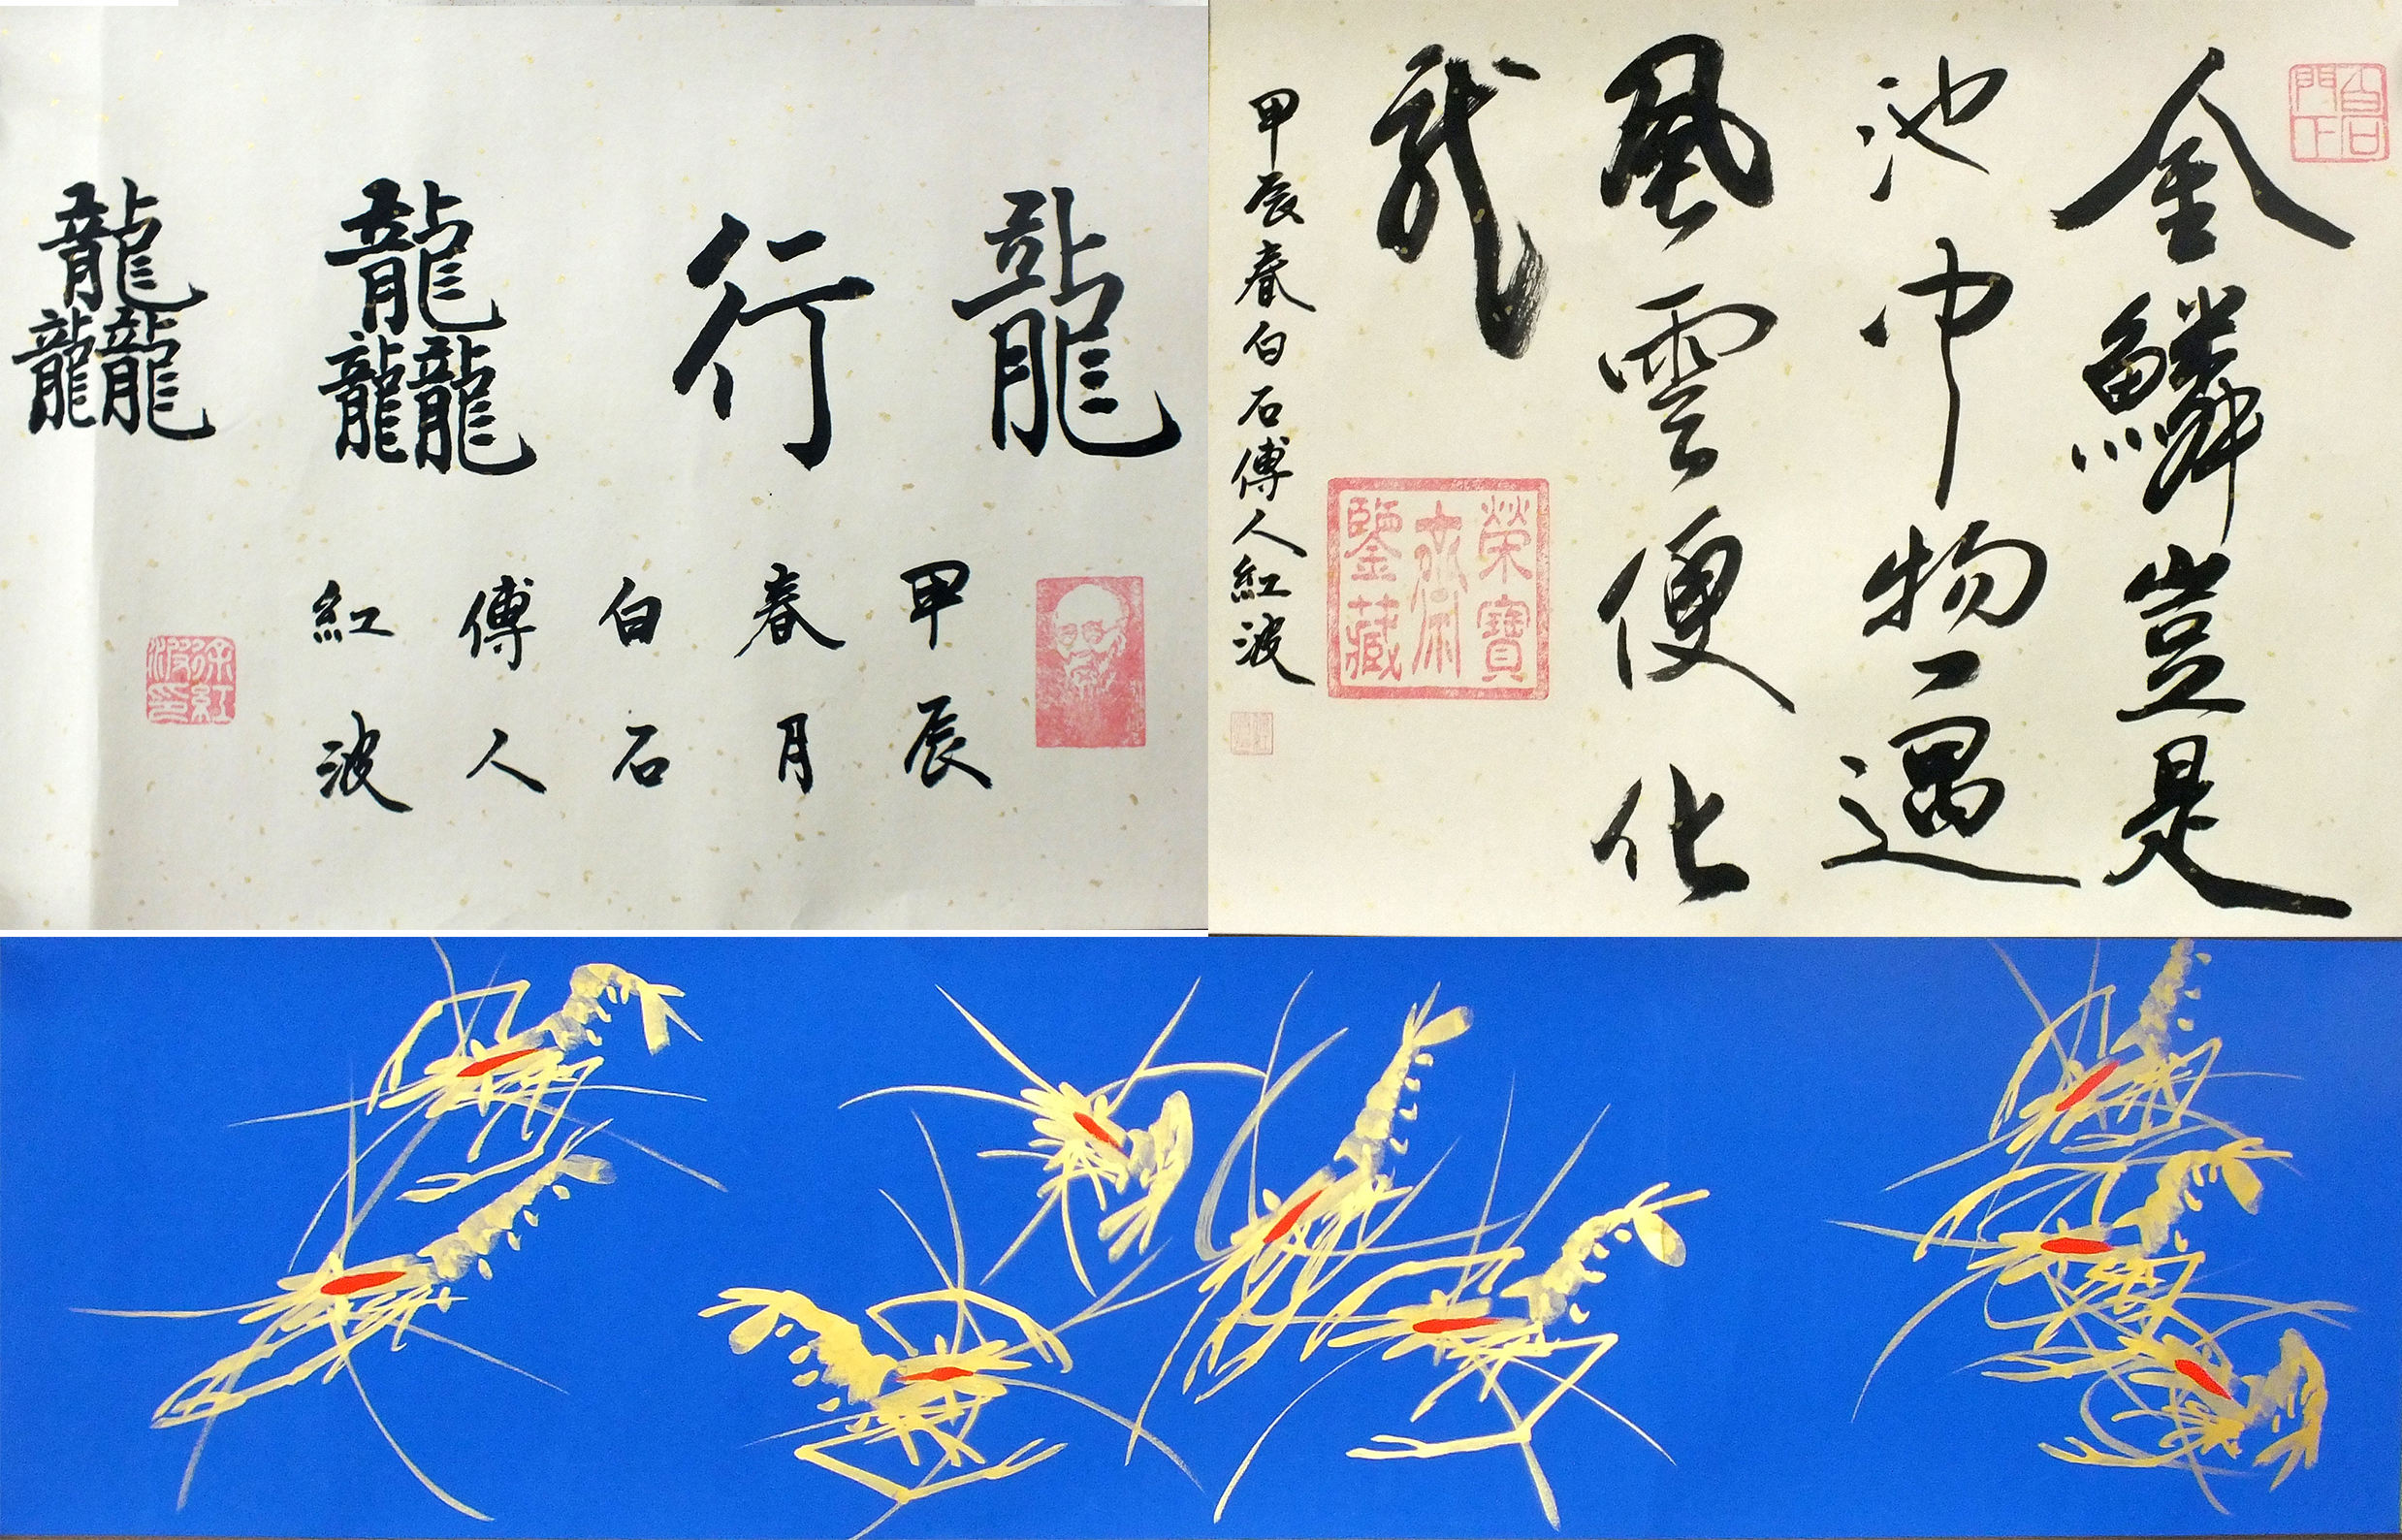 龍行龘龘
甲辰
春月
白石
傳人
紅波
徐紅波印
白石門下
金鱗豈是
池中物一遇
風雲便化
龍
榮寶齋鑒藏
甲辰春白石傳人紅波